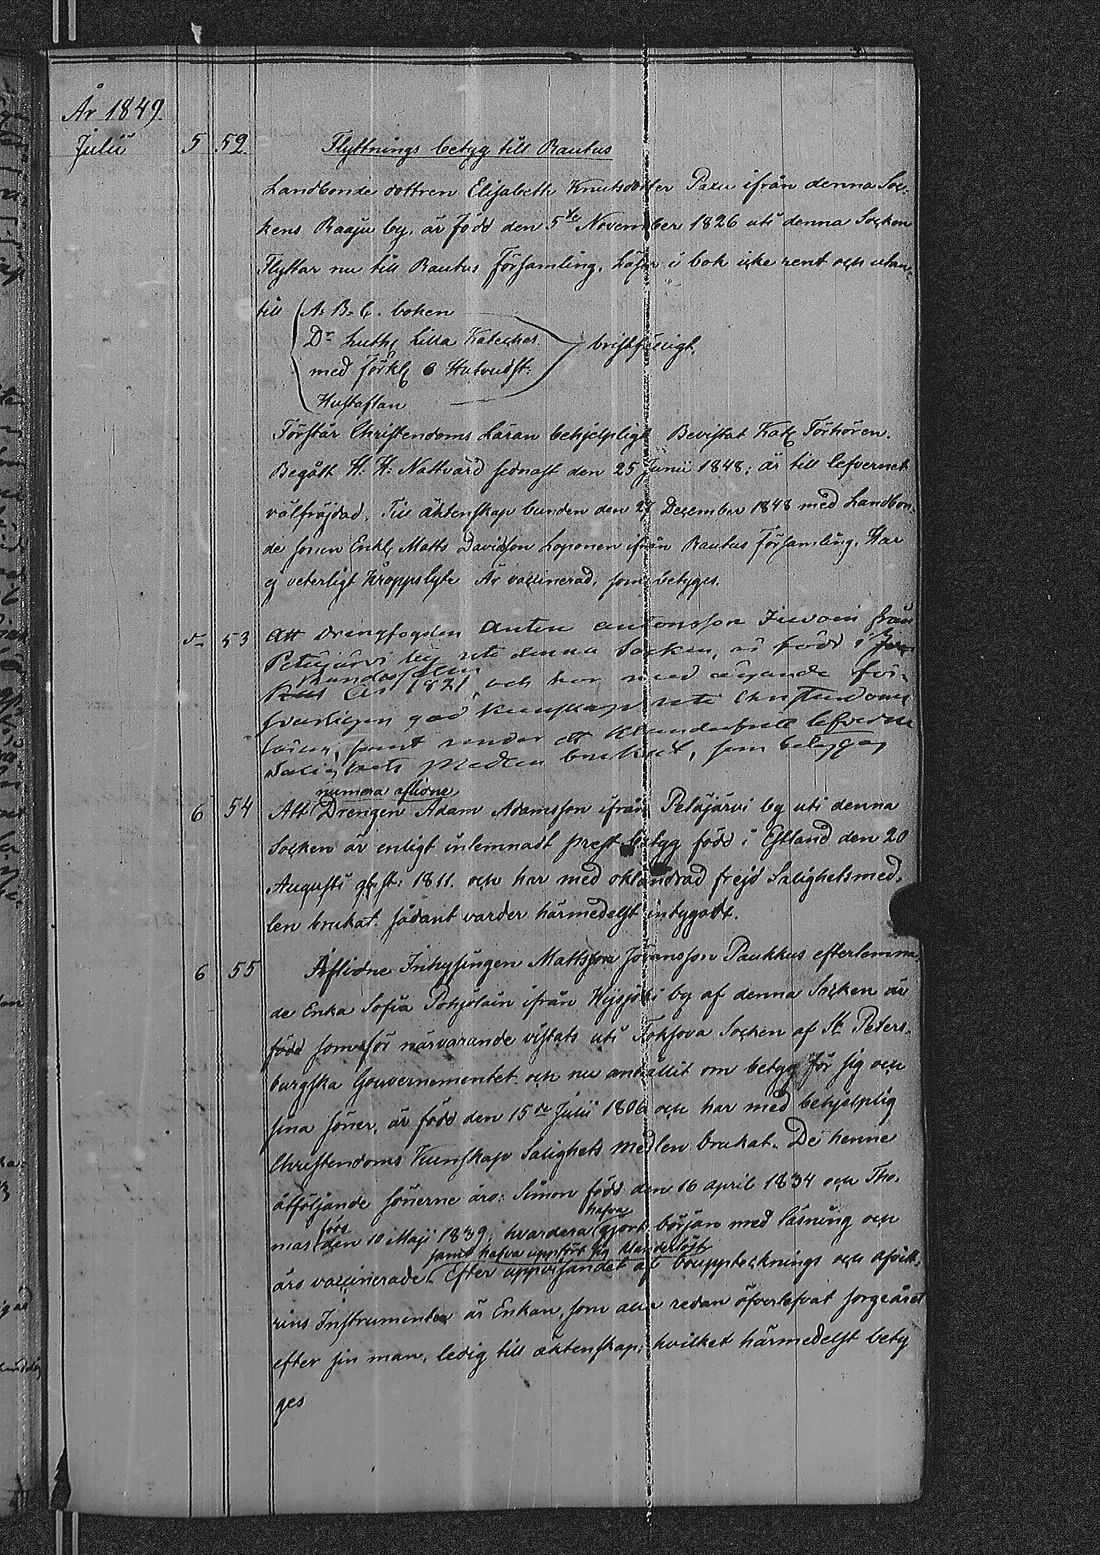 År 1849.
Julii 5 52 Flyttnings betyg till Rautus
Landbonde dottren Elisabeth Knutsdotter Paxu ifrån denna Soc-
kens Raaju by, är född den 5te November 1826 uti denna Socken
Flyttar nu till Rautus Församling. Läser i bok icke rent och utan-
till A. B. C. boken
Dr Luth Lilla Kateches
med förkl 6 Hufvudst: bristfälligt.
Hustaflan
Förstår Christendoms Läran behjelpligt Bevistat Kat Förhören.
Begått H. H. Nattvard sednast den 25 Junii 1848; är till lefvernet
välfräjdad. Till äktenskap bunden den 27 December 1848 med Landbon-
de sonen Enkl Matts Davidson Loponen ifrån Rautus Församling. Har
ej veterligt kroppslyte Är vaccinerad, som betyges.
d– 53 Att Drengfogden Anten Antonsson från
Petäjärvi by uti denna Socken, är född i
År 1821, och har med ägande för-
god kunskap uti Christendoms
läran, samt under ett klanderfritt lefverne
Salighets medlen brukat, som betyges
numera aflidne
6 54 Att Drengen Adam Adamsson ifrån Petäjärvi by uti denna
Socken är enligt inlemnadt prest betyg född i Estland den 20
Augusti 1811. och har med oklandrad frejd Salighetsmed-
len brukat. sådant varder härmedelst intygadt.
6 55 Aflidne Inhysingen Matts Göransson Paukkus efterlemna-
de Enka Sofia Pohjolain ifrån by af denna Socken är
född som för närvarande vistats uti Toksova Socken af St Peters-
burgska Gouvernementet och nu anhållit om betyg för sig och
sina söner, är född den 15de Julii 1806 och har med behjelplig
Christendoms Kunskap Salighets medlen brukat. De henne
åtföljande sönerne äro: Simon född den 16 april 1834 och Tho-
född hafva
mas den 10 Maji 1839; hvardera gjort början med läsning och
samt hafva uppfört sig klanderlöst
äro vaccinerade. Efter uppvisandet af bouppteknings och afvitt-
rins Instrumenter är Enkan, som redan öfverlefvat sorgeåret
efter sin man, ledig till äktenskap; hvilket härmedelst bety
ges